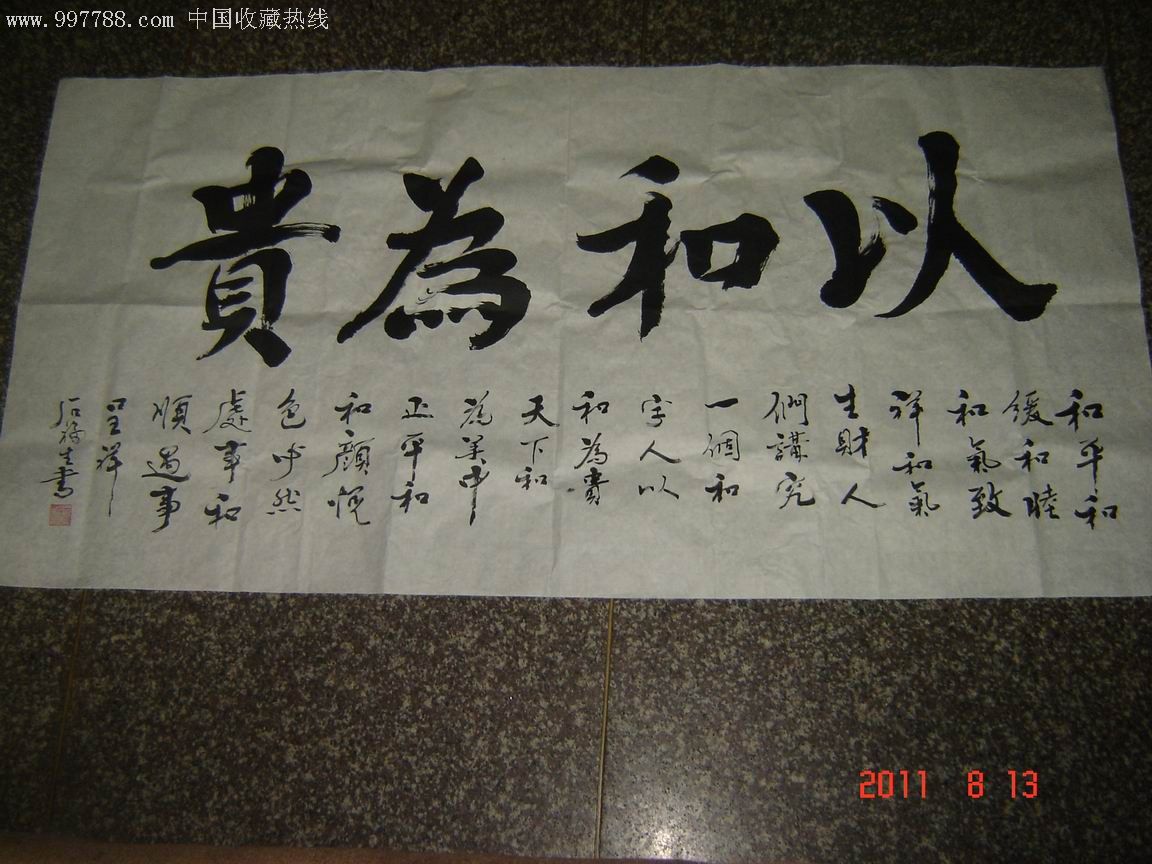 www.997788.com 中国收藏热线
以和為貴
和平和
緩和睦
和氣致
祥和氣
生財人
們講究
一個和
字人以
和為貴
天下和
為美中
正平和
和顏悅
色必然
處事和
順遇事
呈祥
石福生書
2011 8 13